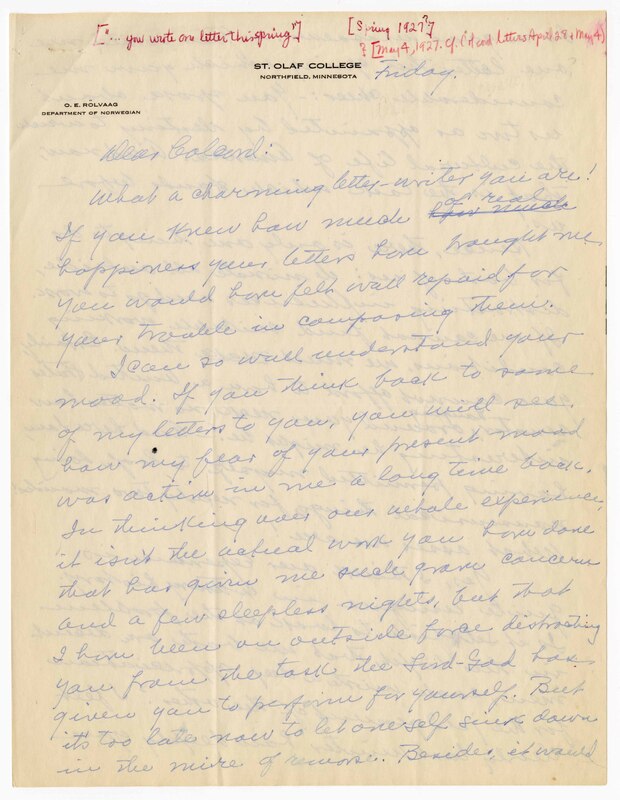 ["... you wrote one letter this spring"]
[Spring 1927?]
? [May 4, 1927. cf. C and Letters April 28 + May 4)
ST. OLAF COLLEGE
NORTHFIELD, MINNESOTA
Friday.
O. E. ROLVAAG
DEPARTMENT OF NORWEGIAN
Dear Colcord:
What a charming letter-writer you are!
If you knew how much how much of real
happiness your letters have brought me
you would have felt well repaid for
your trouble in composing them.
I can so well understand your
mood. If you think back to some
of my letters to you, you will see
how my fear of your present mood
was active in me a long time back.
In thinking over our whole experience,
it isn't the actual work you have done
that has given me such grave concern
and a few sleepless nights, but that
I have been an outside force distracting
you from the task the Lord-God has
given you to perform for yourself. But
it's too late now to let oneself sink down
in the mire of remorse. Besides, it would